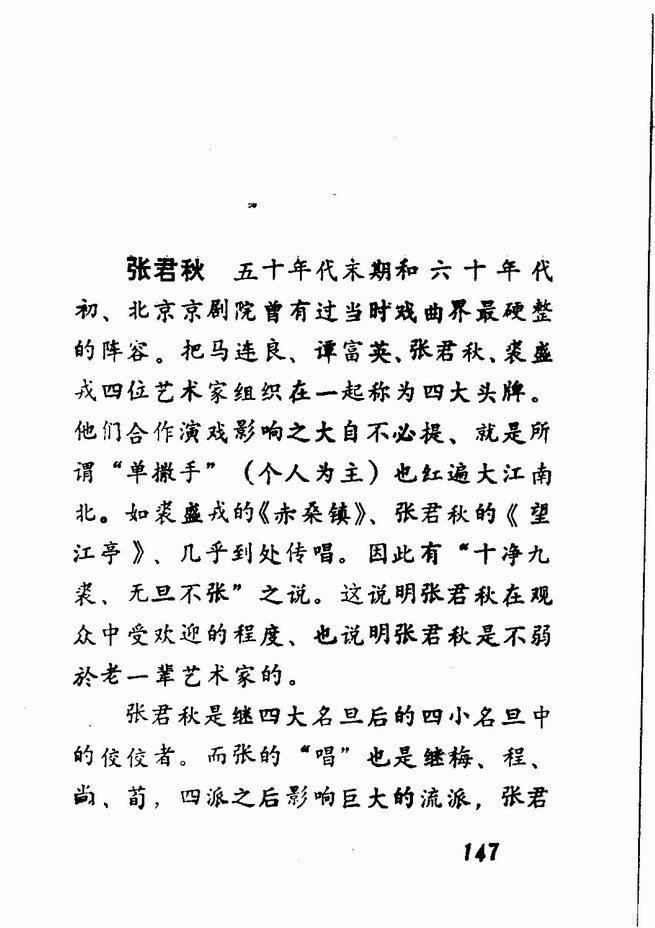 张君秋 五十年代末期和六十年代
初、北京京剧院曾有过当时戏曲界最硬整
的阵容。把马连良、谭富英、张君秋、裘盛
戎四位艺术家组织在一起称为四大头牌。
他们合作演戏影响之大自不必提、就是所
谓“单撒手”（个人为主）也红遍大江南
北。如裘盛戎的《赤桑镇》、张君秋的《望
江亭》、几乎到处传唱。因此有“十净九
裘、无旦不张”之说。这说明张君秋在观
众中受欢迎的程度、也说明张君秋是不弱
於老一辈艺术家的。
张君秋是继四大名旦后的四小名旦中
的佼佼者。而张的“唱”也是继梅、程、
尚、荀，四派之后影响巨大的流派，张君
147